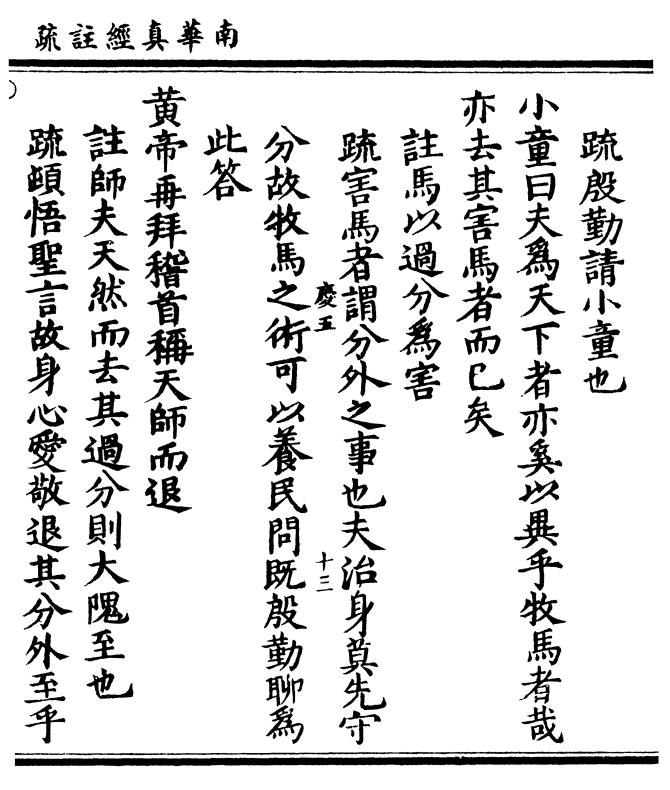 南華真經註疏
疏殷勤請小童也
小童曰夫爲天下者亦奚以異乎牧馬者哉
亦去其害馬者而已矣
註馬以過分爲害
疏害馬者謂分外之事也夫治身莫先守
慶五
十三
分故牧馬之術可以養民問既殷勤聊爲
此答
黄帝再拜稽首稱天師而退
註師夫天然而去其過分則大隗至也
疏頔悟聖言故身心愛敬退其分外至乎